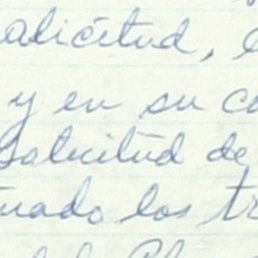 alicitud,
y en su
Salicitud de
uado los